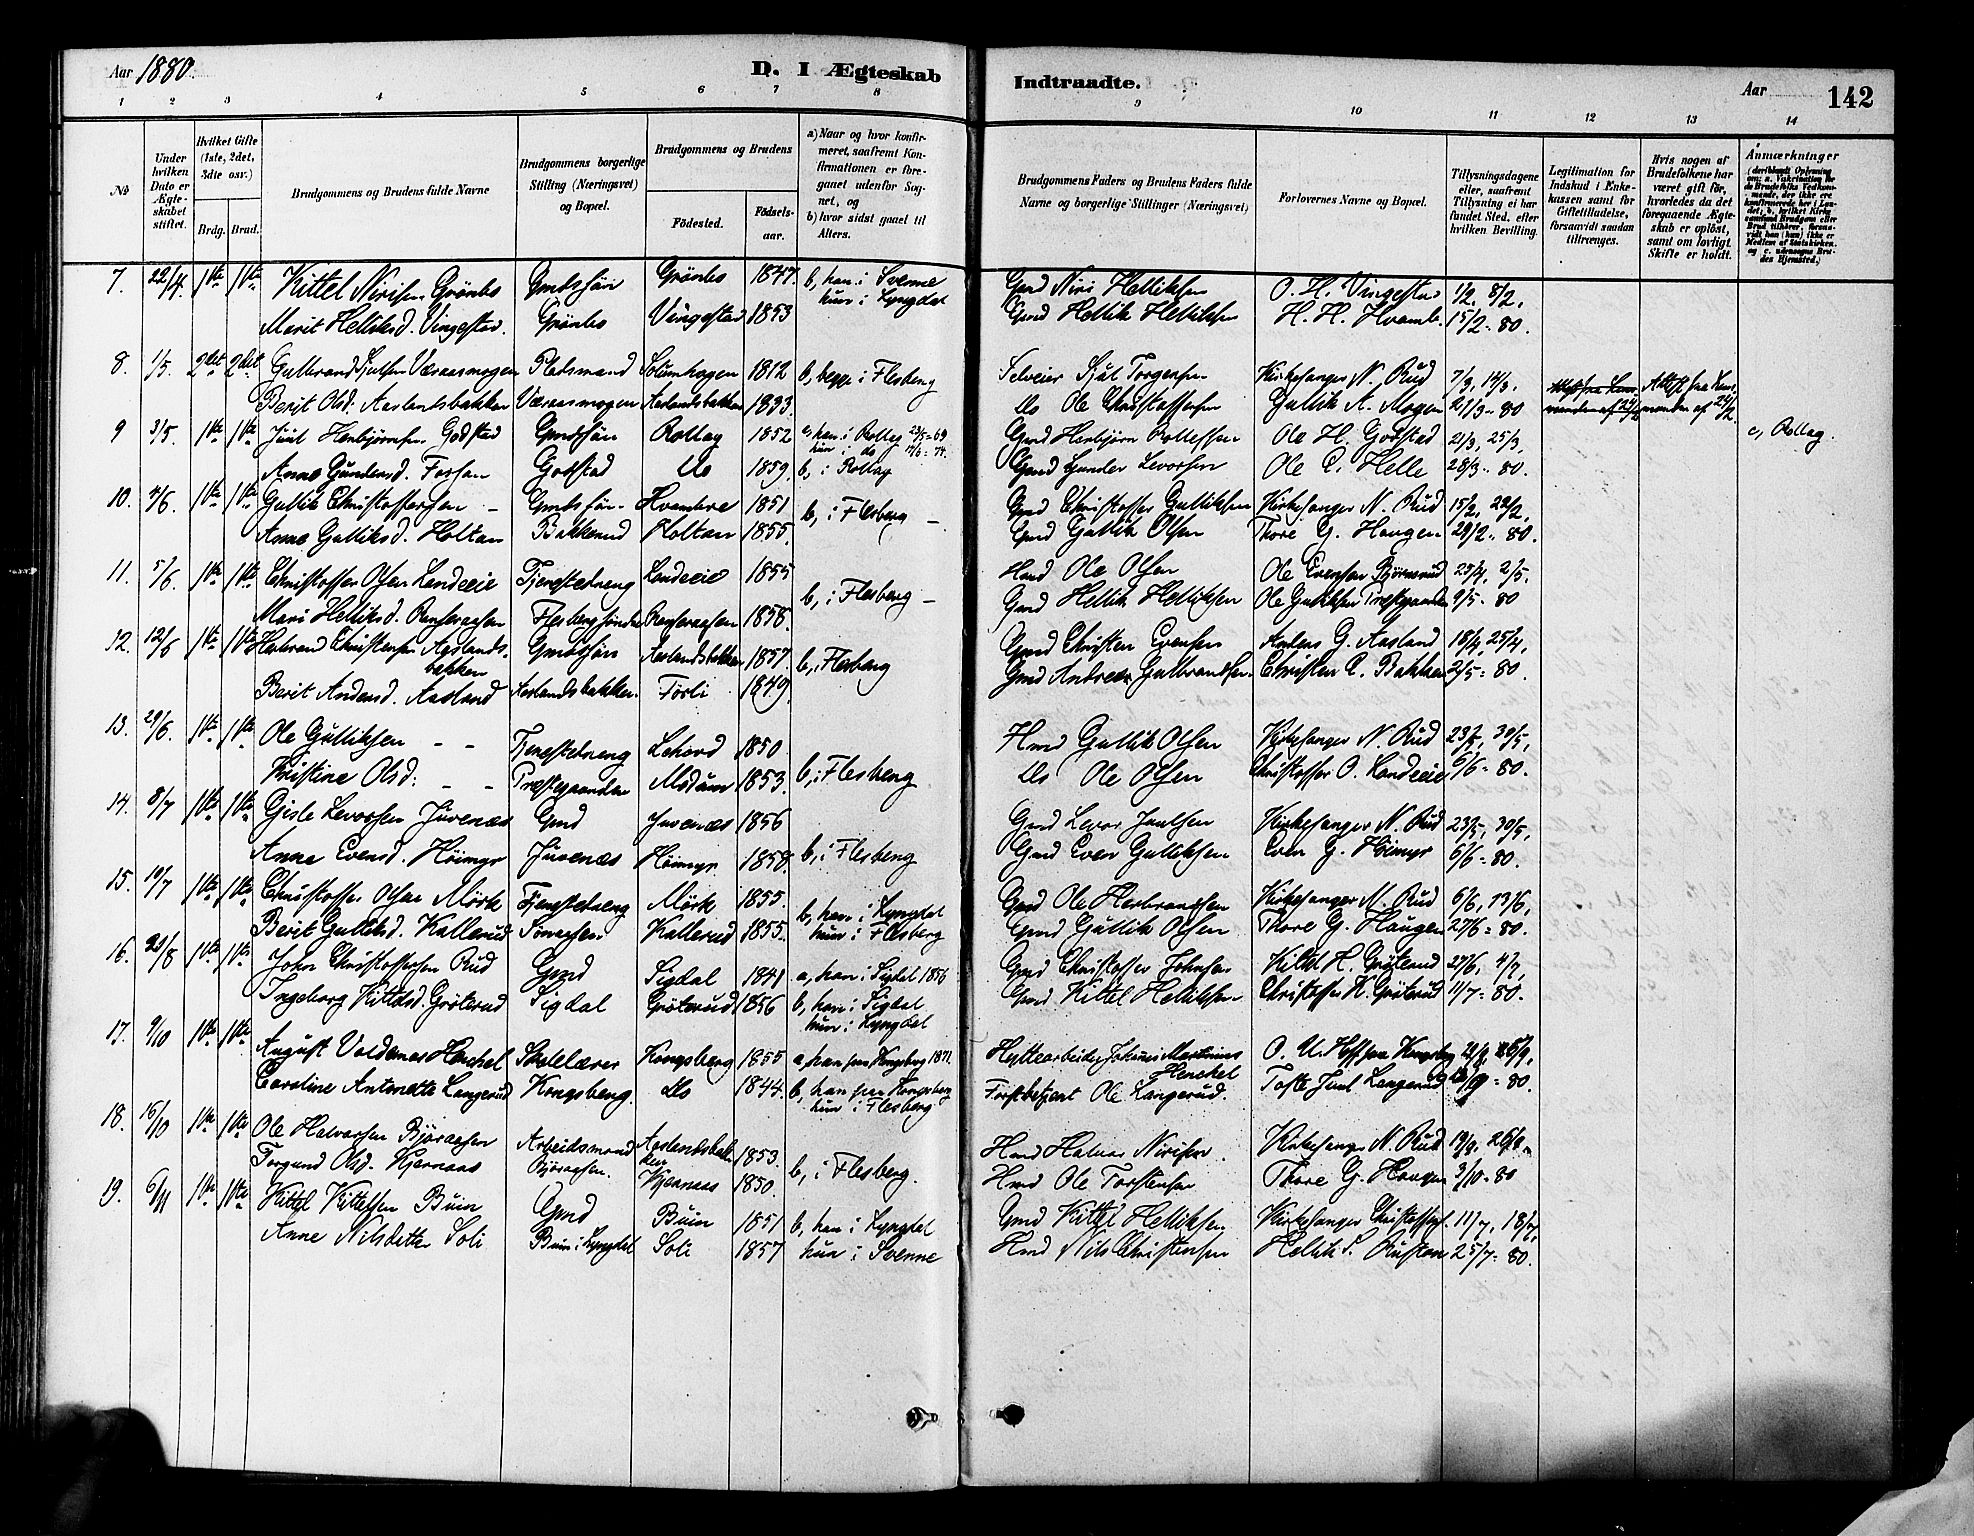 Aar 1880.
D. I Ægteskab
Indtraadte.
Aar
142
1 2 3 4 5 6 7 8 9 10 11 12 13 14
No
Under hvilken Dato er Ægteskabet stiftet.
Hvilket Gifte (1ste, 2det, 3die osv.)
Brdg. Brud.
Brudgommens og Brudens fulde Navne
Brudgommens borgerlige Stilling (Næringsvei) og Bopæl.
Brudgommens og Brudens
Fødested.
Fødselsaar.
a) Naar og hvor konfirmeret, saafremt Konfirmationen er foregaaet udenfor Sognet, og
b) hvor sidst gaaet til Alters.
Brudgommens Faders og Brudens Faders fulde Navne og borgerlige Stillinger (Næringsvei)
Forlovernes Navne og Bopæl.
Tillysningsdagene eller, saafremt Tillysning ei har fundet Sted, efter hvilken Bevilling.
Legitimation for Indskud i Enkekassen samt for Giftetilladelse, forsaavidt saadan tiltrænges.
Hvis nogen af Brudefolkene har været gift før, hvorledes da det foregaaende Ægteskab er opløst, samt om lovligt Skifte er holdt.
Anmærkninger
7. 22/4. 1ste 1ste Kittel Nirisen Grönbo Gmdssön Grönbo 1847. b, han i Svenne Gmd Niri Helliksen O. H. Vingestad 1/2, 8/2,
hun i Lyngdal
Marit Helliksd. Vingestad. Grönbo Vingestad 1853 Gmd Hellik Helliksen H. H. Hvamb. 15/2 - 80.
8. 1/5. 2det 2det Gulbrand Sjulsen Væraasmogen Pladsmand Solumhogen 1812 b, begge i Flesberg Selveier Sjul Torgersen Kirkesanger N. Rud 7/3, 14/3,
Berit Olsd. Aaslandsbakken Væraasmogen Aaslandsbakken 1833. do Ole Christoffersen Gullik A. Mogen 21/3 - 80
9 3/5. 1ste 1ste Juul Herbjørnsen Godstad Gmdssön Rollag 1852 a, han i Rollag 23/5 - 69 Gmd Herbjørn Rollefsen Ole H. Godstad 21/3, 25/3, c, Rollag.
hun i do
Anne Gundersd. Fossan Godstad do 1859. b, i Rollag Gmd Gunder Levorsen Ole C. Helle 28/3 - 80.
10. 4/6. 1ste 1ste Gullik Christoffersen - Gmdssön - Hvambre 1851 b, i Flesberg - Gmd Christoffer Gulliksen Kirkesanger N. Rud 15/2, 22/2,
Anne Gulliksd. Holtan Bakkerud Holtan 1855. Gmd Gullik Olsen Thore G. Haugen 29/2 - 80.
11. 5/6. 1ste 1ste Christoffer Olsen Landeeie Tjenestedreng Landeeie 1855 b, i Flesberg - Hmd Ole Olsen Ole Evensen Bjørnsrud 25/4, 2/5.
Mari Helliksd. 1858. Gmd Hellik Helliksen Ole Gulliksen Præstgaarden 9/5 - 80
12. 12/6 1ste 1ste Herbrand Christensen Aaslands- Gmdssön Aaslandsbakken 1857. b, i Flesberg Gmd Christen Evensen Anders G. Aasland 18/4, 25/4,
bakken
Berit Andersd. Aasland Aaslandsbakken. Törli 1849. Gmd Anders Gulbrandsen Christen E. Bakken 2/5 - 80.
13. 29/6. 1ste 1ste Ole Gulliksen - - Tjenestedreng 1850 b, i Flesberg Hmd Gullik Olsen Kirkesanger N. Rud 23/5, 30/5,
Kristine Olsd. - - Præstegaarden Modum 1853. do Ole Olsen Christoffer O. Landeeie 6/6 - 80.
14. 8/7 1ste 1ste Gisle Levorsen Juvenæs Gmd Juvenæs 1856 b, i Flesberg Gmd Levor Juulsen Kirkesanger N. Rud 23/5, 30/5,
Anne Evensd. Höimyr Juvenæs Höimyr 1858. Gmd Even Gulliksen Even G. Höimyr 6/6 - 80.
15. 10/7 1ste 1ste Christoffer Olsen Mörk Tjenestedreng Mörk 1855. b, han i Lyngdal Gmd Ole Herbrandsen Kirkesanger N. Rud 6/6, 13/6,
hun i Flesberg
Berit Gulliksd. Kallerud Kallerud 1855. Gmd Gullik Olsen Thore G. Haugen 27/6 - 80.
16. 21/8 1ste 1ste John Christoffersen Rud Gmd Sigdal 1841 a, han i Sigdal 1856 Gmd Christoffer Johnsen Kittel H. Gröterud 27/6, 4/7,
Ingeborg Kittelsd. Gröterud Sigdal Gröterud 1856 b, han i Sigdal Gmd Kittel Helliksen Christoffer K. Gröterud 11/7 - 80.
hun i Lyngdal
17. 9/10 1ste 1ste August Valdemar Henckel Skolelærer Kongsberg 1855 a, han paa Kongsberg 1871. Hyttearbeider Johannes Martinius O. U. Hoff paa Kongsberg
Henckel
Caroline Antonette Langerud Kongsberg. do 1844. b, han paa Kongsberg Forstbetjent Ole Langerud. Tofte Juul Langerud
hun i Flesberg
18. 16/10 1ste 1ste Ole Halvorsen Björaasen Arbeidsmand Aaslandsbak- 1853. b, i Flesberg. Hmd Halvor Nirisen. Kirkesanger N. Rud 19/9, 26/9,
ken
Torgund Olsd. Kjernaas Björaasen. Kjernaas 1850. Hmd Ole Torstensen Thore G. Haugen 3/10 - 80
19. 6/11 1ste 1ste Kittel Kittelsen Buin Gmd Buin 1851 b, han i Lyngdal Gmd Kittel Helliksen Kirkesanger Christoffersen 11/7, 18/7,
Anne Nilsdatter Soli Buin i Lyngdal Soli 1857 hun i Svenne Hmd Nils Christensen Hellik S. Rustan 25/7 - 80.